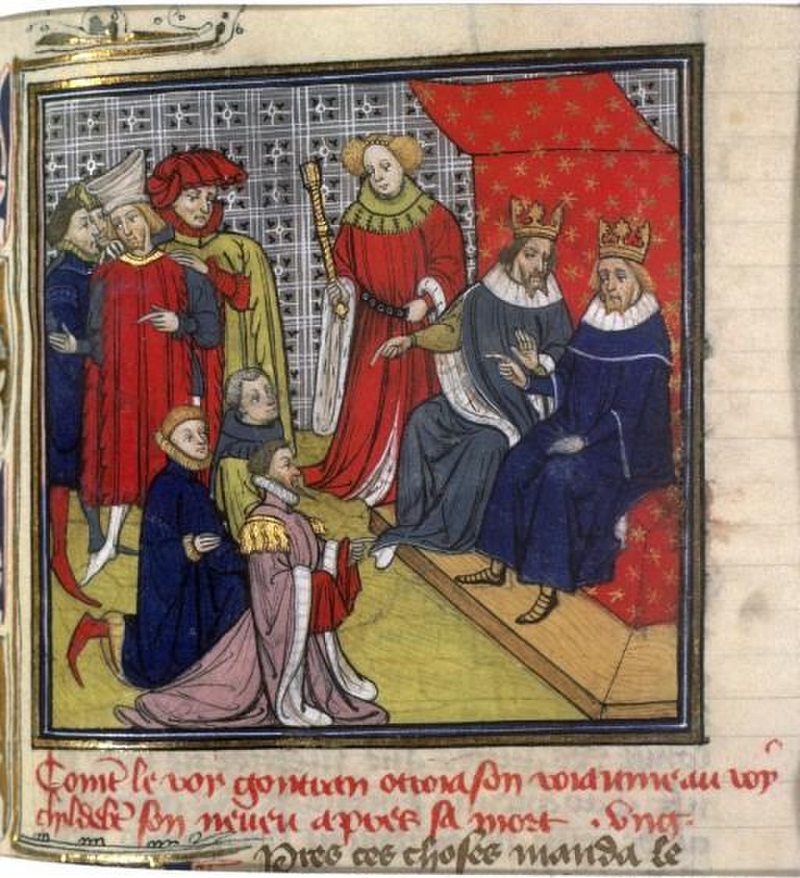 Come le roy gontran otroia son roiaume au roy
childebt son neueu apres sa mort . Vng.
Pres ces choses manda le